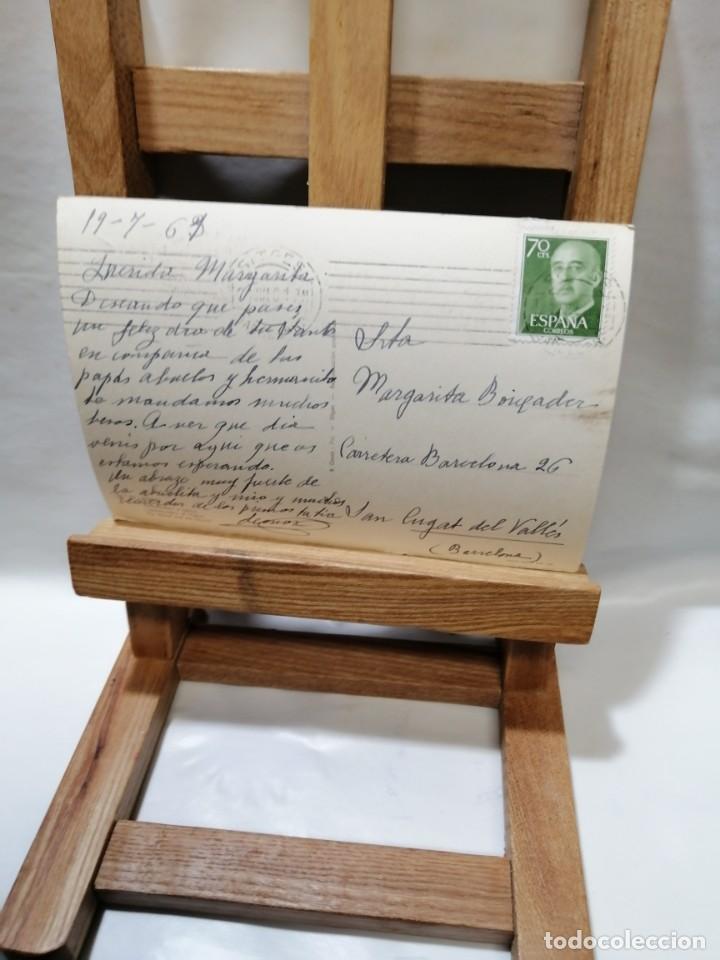 19-7-6
Querida Margarita
Deseando que pases
un feliz dia de tu Santo
en compania de tus
papás abuelos y hermanito
te mandamos muchos
besos. A ver que dia
venis por aqui que os
estamos esperando.
Un abrazo muy fuerte de
la abuelita y mio y muchos
recuerdos de los primos tu tia
Leonor
70 CTS
ESPAÑA
CORREOS
Srta
Margarita
Carretera Barcelona 26
San Cugat del Vallés
(Barcelona)
todocoleccion